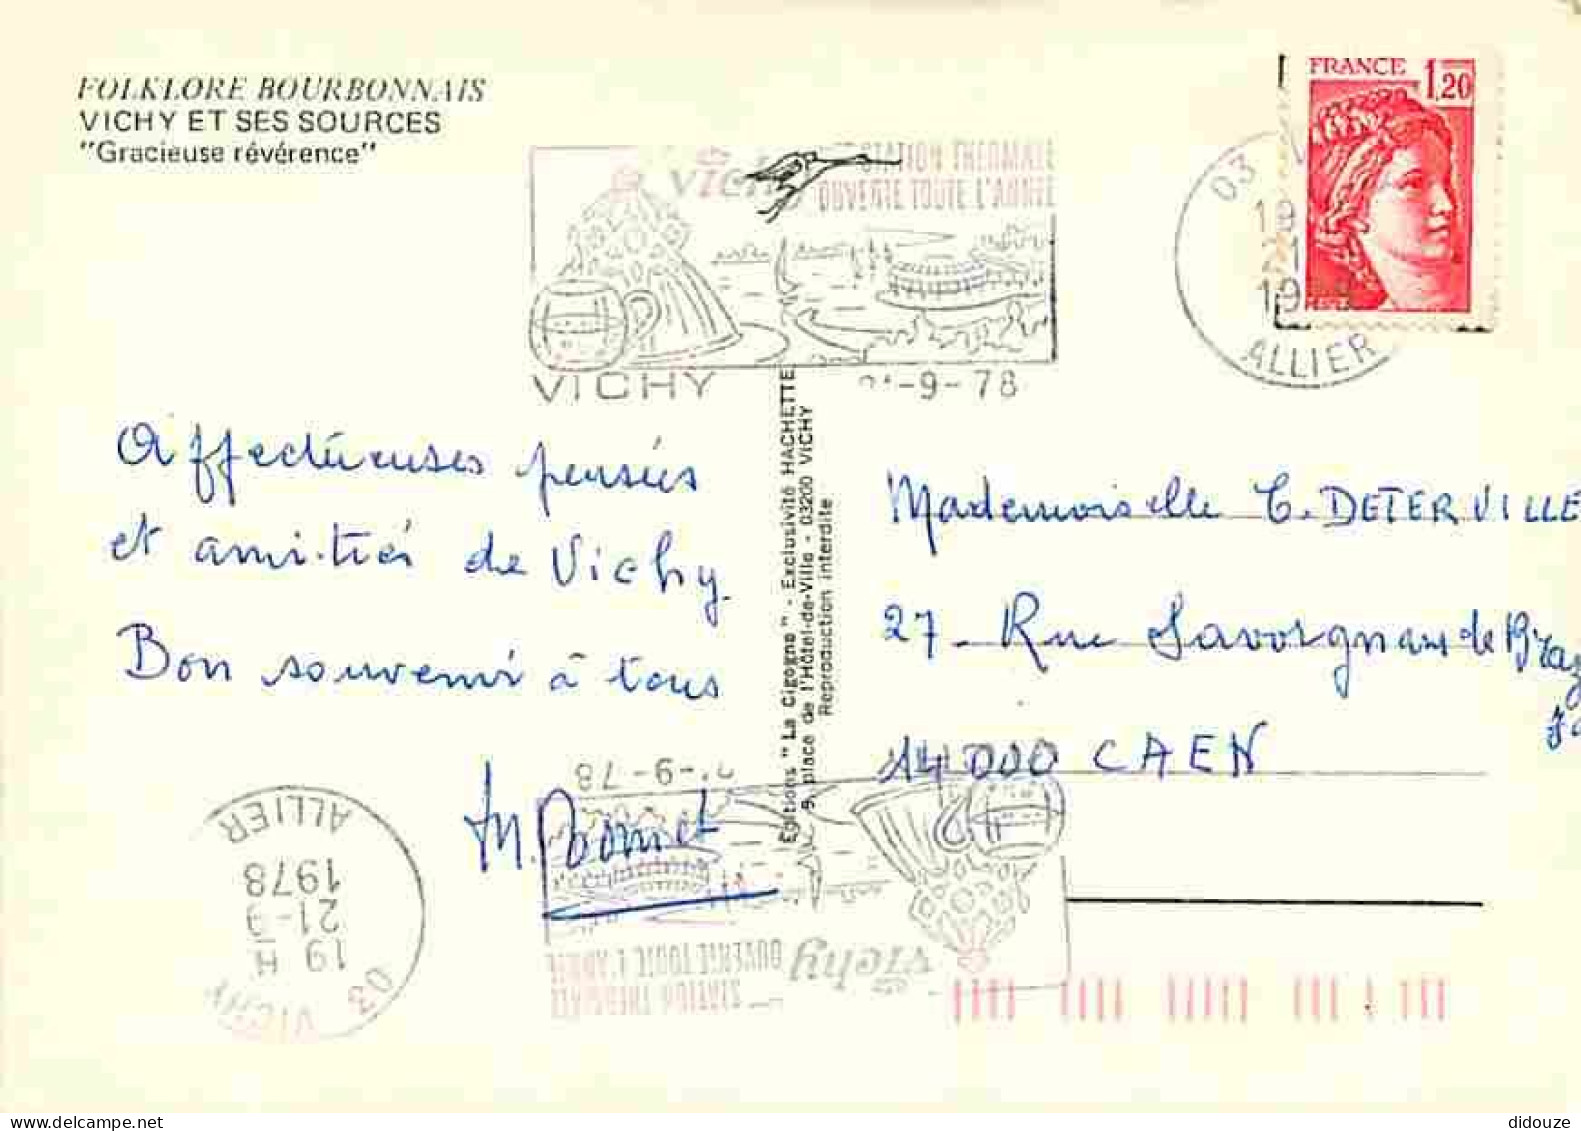 FOLKLORE BOURBONNAIS
VICHY ET SES SOURCES
"Gracieuse révérence"
FRANCE 1,20
STATION THERMALE
OUVERTE TOUTE L'ANNÉE
vichy
VICHY
-9-78
03
19
1
19
ALLIER
Affectueuses pensées
et amitiés de Vichy.
Bon souvenir à tous
M. Bonnet
Editions "La Cigogne" - Exclusivité HACHETTE
9, place de l'Hôtel-de-Ville - 03200 VICHY
Reproduction interdite
Mademoiselle C. DETERVILLE
27 - Rue Savorgnan de Braz
14000 CAEN
-9-78
vichy
STATION THERMALE
OUVERTE TOUTE L'ANNÉE
03 VICHY
19 H
21-9
1978
ALLIER
didouze